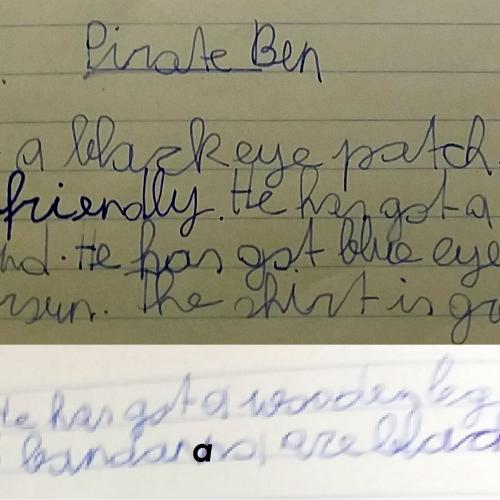 Pirate Ben
a black eye patch.
friendly. He has got a
nd. He has got blue eye
rsun. The shirt is gr
He has got a wooden leg
bandanas are black